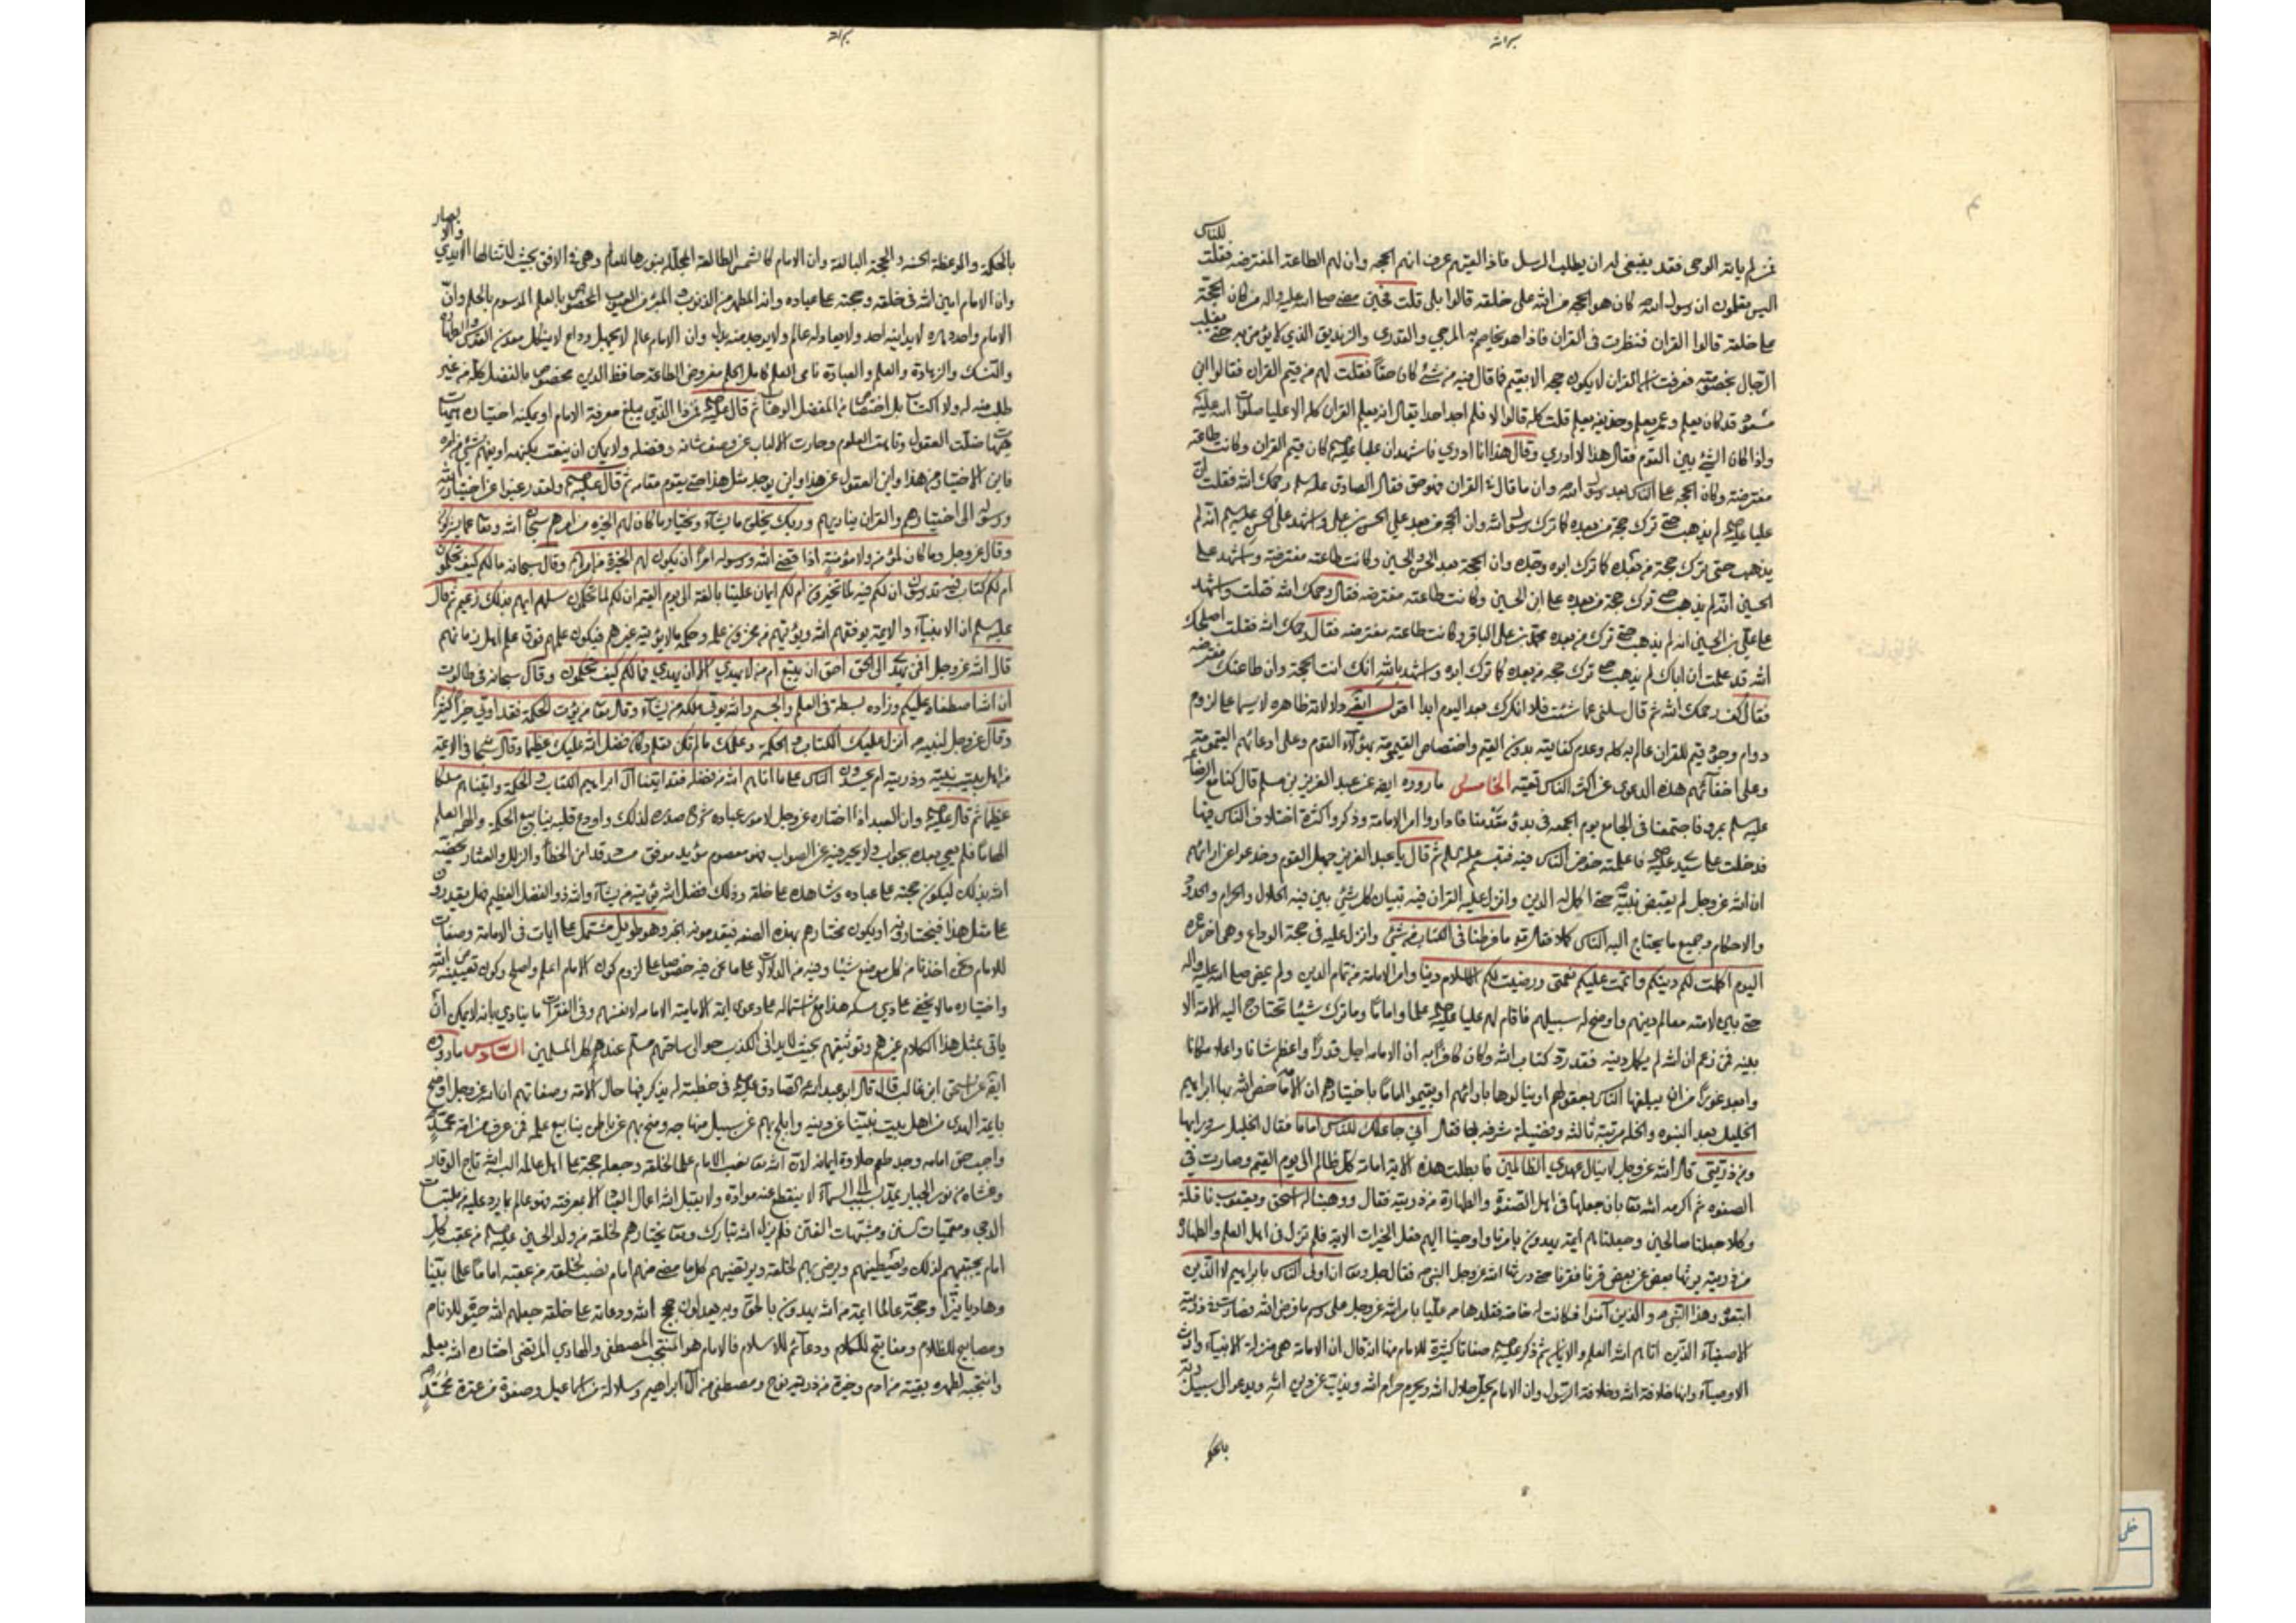 للناس
فمن لم يأته الوحي فقد ينبغي له ان يطلب الرسل فاذا لقيهم عرف انهم الحجه وان لهم الطاعة المفترضه فقلت
اليس تعلمون ان رسول الله كان هو الحجه من الله على خلقه قالوا بلى قلت فحين مضى صلى الله عليه واله من كان الحجة
على خلقه قالوا القران فنظرت في القران فاذا هو يخاصم به المرجي والقدري والزنديق الذي لا يؤمن به حتى يغلب
الرجال بخصومته فعرفت ان القران لا يكون حجه الا بقيم فما قال فيه من شئ كان حقا فقلت لهم من قيم القران فقالوا ابن
مسعود قد كان يعلم وعمر يعلم وحذيفه يعلم قلت كله قالوا لا فلم اجد احدا يقال انه يعلم القران كله الا عليا صلوات الله عليه
واذا كان الشئ بين القوم فقال هذا لا ادري وقال هذا انا ادري فاشهد ان عليا عليه السلم كان قيم القران وكانت طاعته
مفترضة وكان الحجه على الناس بعد رسول الله وان ما قال في القران فهو حق فقال الصادق عليه سلم رحمك الله فقلت ان
عليا عليه السلم لم يذهب حتى ترك حجة من بعده كما ترك رسول الله وان الحجه من بعد علي الحسن بن علي واشهد على الحسن عليه سلم انه لم
يذهب حتى ترك حجة من بعده كما ترك ابوه وجده وان الحجة بعد الحسن الحسين وكانت طاعته مفترضه واشهد على
الحسين انه لم يذهب حتى ترك حجة من بعده علي ابن الحسين وكانت طاعته مفترضه فقال رحمك الله فقلت واشهد
على علي بن الحسين انه لم يذهب حتى ترك من بعده محمد بن علي الباقر وكانت طاعته مفترضه فقال رحمك الله فقلت اصلحك
الله قد علمت ان اباك لم يذهب حتى ترك حجه من بعده كما ترك ابوه واشهد بالله انك انت الحجة وان طاعتك مفترضه
فقال كف رحمك الله ثم قال سلني عما شئت فلا انكرك بعد اليوم ابدا اقول دلالاته ظاهره لا سيما على لزوم
دوام وجود قيم للقران عالم به كله وعدم كفايته بدون القيم واختصاص القيمومة بهؤلاء القوم وعلى ادعائهم القيمومة
وعلى اخفائهم هذه الدعوى عن اكثر الناس تقية الخامس ما رووه ايضا عن عبد العزيز بن مسلم قال كنا مع الرضا
عليه سلم بمرو فاجتمعنا في الجامع يوم الجمعه في بدؤ مقدمنا فاداروا امر الامامة وذكروا كثرة اختلاف الناس فيها
فدخلت على سيدي عليه السلم فاعلمته خوض الناس فيه فتبسم عليه السلم ثم قال يا عبد العزيز جهل القوم وخدعوا عن ارائهم
ان الله عز وجل لم يقبض نبيه حتى اكمل له الدين وانزل عليه القران فيه تبيان كل شئ بين فيه الحلال والحرام والحدود
والاحكام وجميع ما يحتاج اليه الناس كملا فقال تع ما فرطنا في الكتاب من شئ وانزل عليه في حجة الوداع وهي اخر عمره
اليوم اكملت لكم دينكم واتممت عليكم نعمتي ورضيت لكم الاسلام دينا وامر الامامة من تمام الدين ولم يمض صلى الله عليه واله
حتى بين لامته معالم دينهم واوضح له سبيلهم فاقام لهم عليا عليه السلم علما واماما وما ترك شيئا تحتاج اليه الامة الا
بينه فمن زعم ان الله لم يكمل دينه فقد رد كتاب الله وكان كافرا به ان الامامه اجل قدرا واعظم شانا واعلا مكانا
وابعد غورا من ان يبلغها الناس بعقولهم او ينالوها بارائهم او يقيموا اماما باختيارهم ان الامامة خص الله بها ابراهيم
الخليل بعد النبوه والخله مرتبة ثالثة وفضيلة شرفه بها فقال اني جاعلك للناس اماما فقال الخليل سرورا بها
ومن ذريتي قال الله عز وجل لا ينال عهدي الظالمين فابطلت هذه الاية امامة كل ظالم الى يوم القيمه وصارت في
الصفوه ثم اكرمه الله تعا بان جعلها في اهل الصفوة والطهارة من ذريته فقال ووهبنا له اسحق ويعقوب نافلة
وكلا جعلنا صالحين وجعلناهم ائمة يهدون بامرنا واوحينا اليهم فعل الخيرات الاية فلم تزل في اهل العلم والطهارة
من ذريته يرثها بعض عن بعض قرنا فقرنا حتى ورثها الله عز وجل النبي ص فقال جل وتعا ان اولى الناس بابراهيم للذين
اتبعوه وهذا النبي والذين آمنوا فكانت له خاصة فقلدها ص عليا بامر الله عز وجل على رسم ما فرض الله فصارت في ذريته
الاصفياء الذين اتاهم الله العلم والايمان ثم ذكر عليه السلم صفاتا كثيرة للامام منها انه قال ان الامامة هي منزلة الانبياء وارث
الاوصياء وانها خلافة الله وخلافة الرسول وان الامام يحل حلال الله ويحرم حرام الله ويذب عن دين الله ويدعو الى سبيل ربه
بالحكمة
والابصار
بالحكمة والموعظة الحسنه والحجة البالغة وان الامام كالشمس الطالعة المجللة بنورها للعالم وهي في الافق بحيث لا تنالها الايدي
وان الامام امين الله في خلقه وحجته على عباده وانه المطهر من الذنوب المبرء من العيوب المخصوص بالعلم الموسوم بالحلم وان
الامام واحد دهره لا يدانيه احد ولا يعادله عالم ولا يوجد منه بدل وان الامام عالم لا يجهل وداع لا ينكل معدن القدس والطهارة
والنسك والزهادة والعلم والعبادة نامي العلم كامل الحلم مفروض الطاعة حافظ الدين مخصوص بالفضل كله من غير
طلب منه له ولا اكتساب بل اختصاص من المفضل الوهاب ثم قال عليه السلم فمن ذا الذي يبلغ معرفة الامام او يمكنه اختياره هيهات
هيهات ضلت العقول وتاهت الحلوم وحارت الالباب عن وصف شانه وفضله ولا يمكن ان ينعت بكنهه او يفهم شئ من امره
فاين الاختيار من هذا واين العقول عن هذا واين يوجد مثل هذا حتى يقوم مقامه ثم قال عليه السلم ولقد رغبوا عن اختيار الله
ورسوله الى اختيارهم والقران يناديهم وربك يخلق ما يشاء ويختار ما كان لهم الخيره من امرهم سبحان الله وتعا عما يشركون
وقال عز وجل وما كان لمؤمن ولا مؤمنة اذا قضى الله ورسوله امرا ان يكون لهم الخيرة من امرهم وقال سبحانه ما لكم كيف تحكمون
ام لكم كتاب فيه تدرسون ان لكم فيه لما تخيرون ام لكم ايمان علينا بالغة الى يوم القيمه ان لكم لما تحكمون سلهم ايهم بذلك زعيم ثم قال
عليه سلم ان الانبياء والائمة يوفقهم الله ويؤتيهم من مخزون علمه وحكمه ما لا يؤتيه غيرهم فيكون علمهم فوق علم اهل زمانهم
قال الله عز وجل افمن يهدي الى الحق احق ان يتبع ام من لا يهدي الا ان يهدى فما لكم كيف تحكمون وقال سبحانه في طالوت
ان الله اصطفاه عليكم وزاده بسطة في العلم والجسم والله يؤتي ملكه من يشاء وقال تعا من يؤت الحكمة فقد اوتي خيرا كثيرا
وقال عز وجل لنبيه ص انزل عليك الكتاب والحكمة وعلمك ما لم تكن تعلم وكان فضل الله عليك عظيما وقال في الائمة
من اهل بيت نبيه وذريته ام يحسدون الناس على ما اتاهم الله من فضله فقد اتينا ال ابراهيم الكتاب والحكمة واتيناهم ملكا
عظيما ثم قال عليه السلم وان العبد اذا اختاره عز وجل لامور عباده شرح صدره لذلك واودع قلبه ينابيع الحكمة والهمه العلم
الهاما فلم يعي بعده بجواب ولا يحير فيه عن الصواب فهو معصوم مؤيد موفق مسدد قد امن الخطا والزلل والعثار يخصه
الله بذلك ليكون حجته على عباده وشاهده على خلقه وذلك فضل الله يؤتيه من يشاء والله ذو الفضل العظيم فهل يقدرون
على مثل هذا فيختارونه او يكون مختارهم بهذه الصفه فيقدمونه الخبر وهو طويل مشتمل على ايات في الامامة وصفات
للامام ونحن اخذنا من كل موضع شيئا وفيه من الدلالات على ما نحن فيه خصوصا على لزوم كون الامام اعلم واصلح وكون تعيينه من الله
واختياره ما لا يخفى على ذي مسكه هذا مع اشتماله على دعوى ائمة الامامية الامامه لانفسهم وفي الفقرات ما ينادي بانه لا يمكن ان
ياتي بمثل هذا الكلام غيرهم وتوثيقهم بحيث لا يدانى الكذب حوالى ساحتهم مسلم عندهم كل المسلمين السادس ما رووه
عن اسحق ابن غالب قال قال ابو عبد الله الصادق عليه السلم في خطبته له يذكر فيها حال الائمة وصفاتهم ان الله عز وجل اوضح
بائمة الهدى من اهل بيت نبينا عن دينه وابلج بهم عن سبيل منهاجه ومنح بهم عن باطن ينابيع علمه فمن عرف من امة محمد
واجب حق امامه وجد طعم حلاوة ايمانه لان الله تعا نصب الامام علما لخلقه وجعله حجة على اهل عالمه البسه الله تاج الوقار
وغشاه من نور الجبار يمد بسبب الى السماء لا ينقطع عنه مواده ولا يقبل الله اعمال العباد الا بمعرفته فهو عالم بما يرد عليه من ملتبسات
الدجى ومعميات السنن ومشبهات الفتن فلم يزل الله تبارك وتعا يختارهم لخلقه من ولد الحسين عليه السلم من عقب كل
امام يجتبيهم لذلك ويصطفيهم ويرضى بهم لخلقه ويرتضيهم كل ما مضى منهم امام نصب لخلقه من عقبه اماما علما بينا
وهاديا نيرا وحجة عالما ائمة من الله يهدون بالحق وبه يعدلون حجج الله ودعاته على خلقه جعلهم الله حيوة للانام
ومصابيح للظلام ومفاتيح للكلام ودعائم للاسلام فالامام هو المنتجب المصطفى والهادي المرتضى اختاره الله بعلمه
وانتجبه لطهره بقية من ادم وخيرة من ذرية نوح ومصطفى من آل ابراهيم وسلالة من اسماعيل وصفوة من عترة محمد